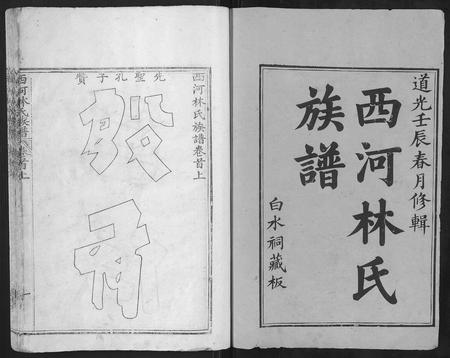 道光壬辰春月修輯
西河林氏
族譜
白水祠藏板
西河林氏族譜卷首上
先聖孔子贊
殷
西河林氏族譜 卷首上
一